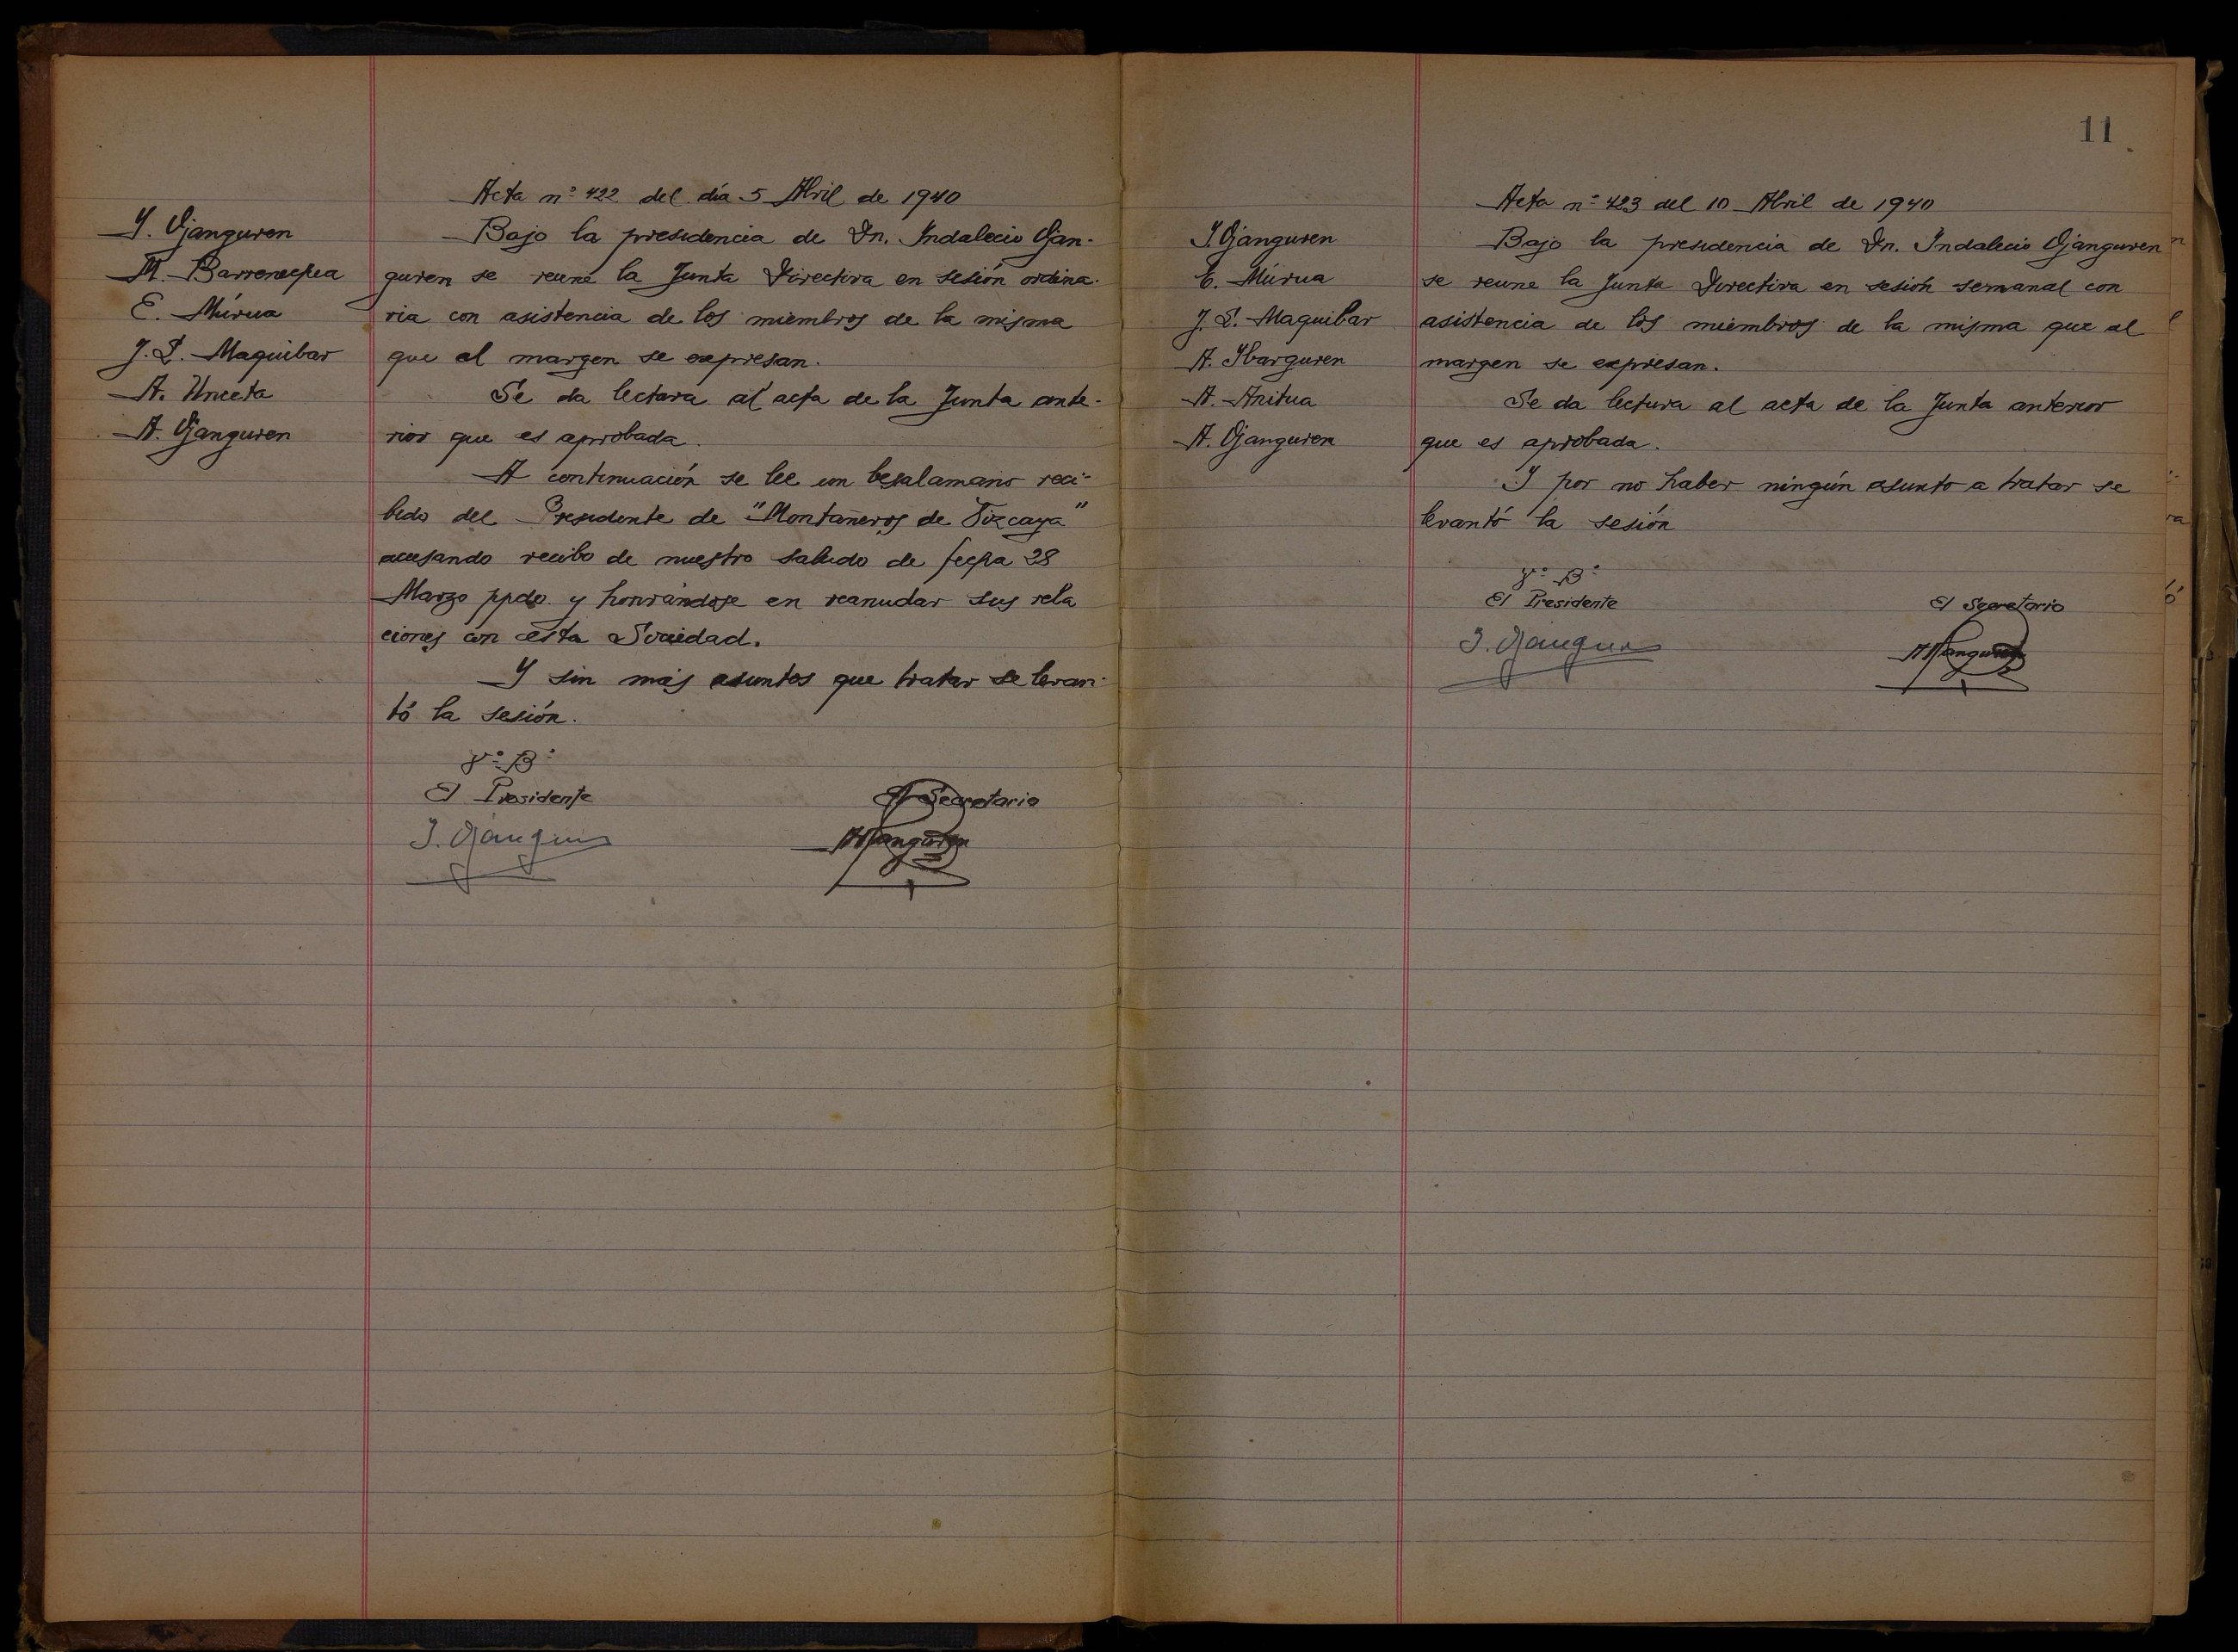 Acta nº 422 del día 5 Abril de 1940
I. Ojanguren
M. Barrenechea
E. Múrua
J. L. Maguibar
A. Unceta
A. Ojanguren
Bajo la presidencia de Dn. Indalecio Ojan-
guren se reune la Junta Directiva en sesión ordina-
ria con asistencia de los miembros de la misma
que al margen se expresan.
Se da lectura al acta de la Junta ante-
rior que es aprobada.
A continuación se lee un besalamano reci-
bido del Presidente de "Montañeros de Vizcaya"
acusando recibo de nuestro saludo de fecha 28
Marzo ppdo. y honrándose en reanudar sus rela
ciones con esta Sociedad.
Y sin más asuntos que tratar se levan-
tó la sesión.
Vº Bº
El Presidente
El Secretario
I. Ojanguren
A. Ojanguren
11
Acta nº 423 del 10 Abril de 1940
I. Ojanguren
E. Múrua
J. L. Maguibar
A. Ibarguren
A. Anitua
A. Ojanguren
Bajo la presidencia de Dn. Indalecio Ojanguren
se reune la Junta Directiva en sesión semanal con
asistencia de los miembros de la misma que al
margen se expresan.
Se da lectura al acta de la Junta anterior
que es aprobada.
Y por no haber ningún asunto a tratar se
levantó la sesión
Vº Bº
El Presidente
El Secretario
I. Ojanguren
A. Ojanguren